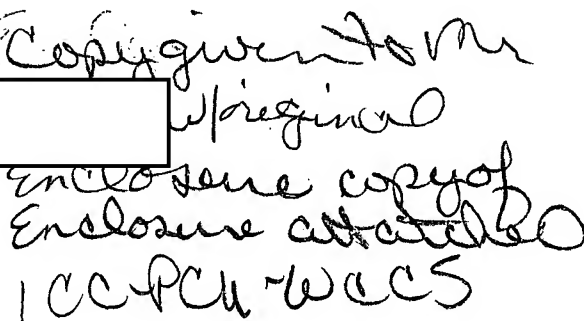 Copy given to Mr
w/original
Enclosure copy of
Enclosure attached
1 CC-PCH-WCCS